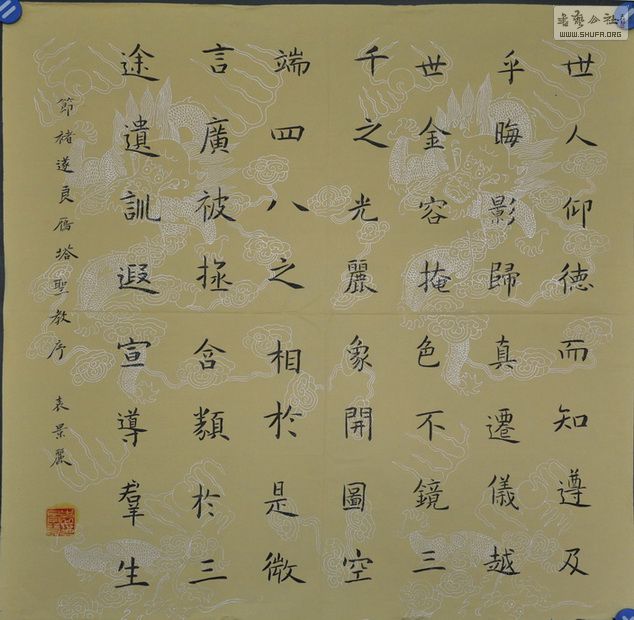 世人仰德而知遵及
乎晦影歸真遷儀越
世金容掩色不鏡三
千之光麗象開圖空
端四八之相於是微
言廣被拯含類於三
途遺訓遐宣導羣生
節褚遂良雁塔聖教序 袁景麗
WWW.SHUFA.ORG